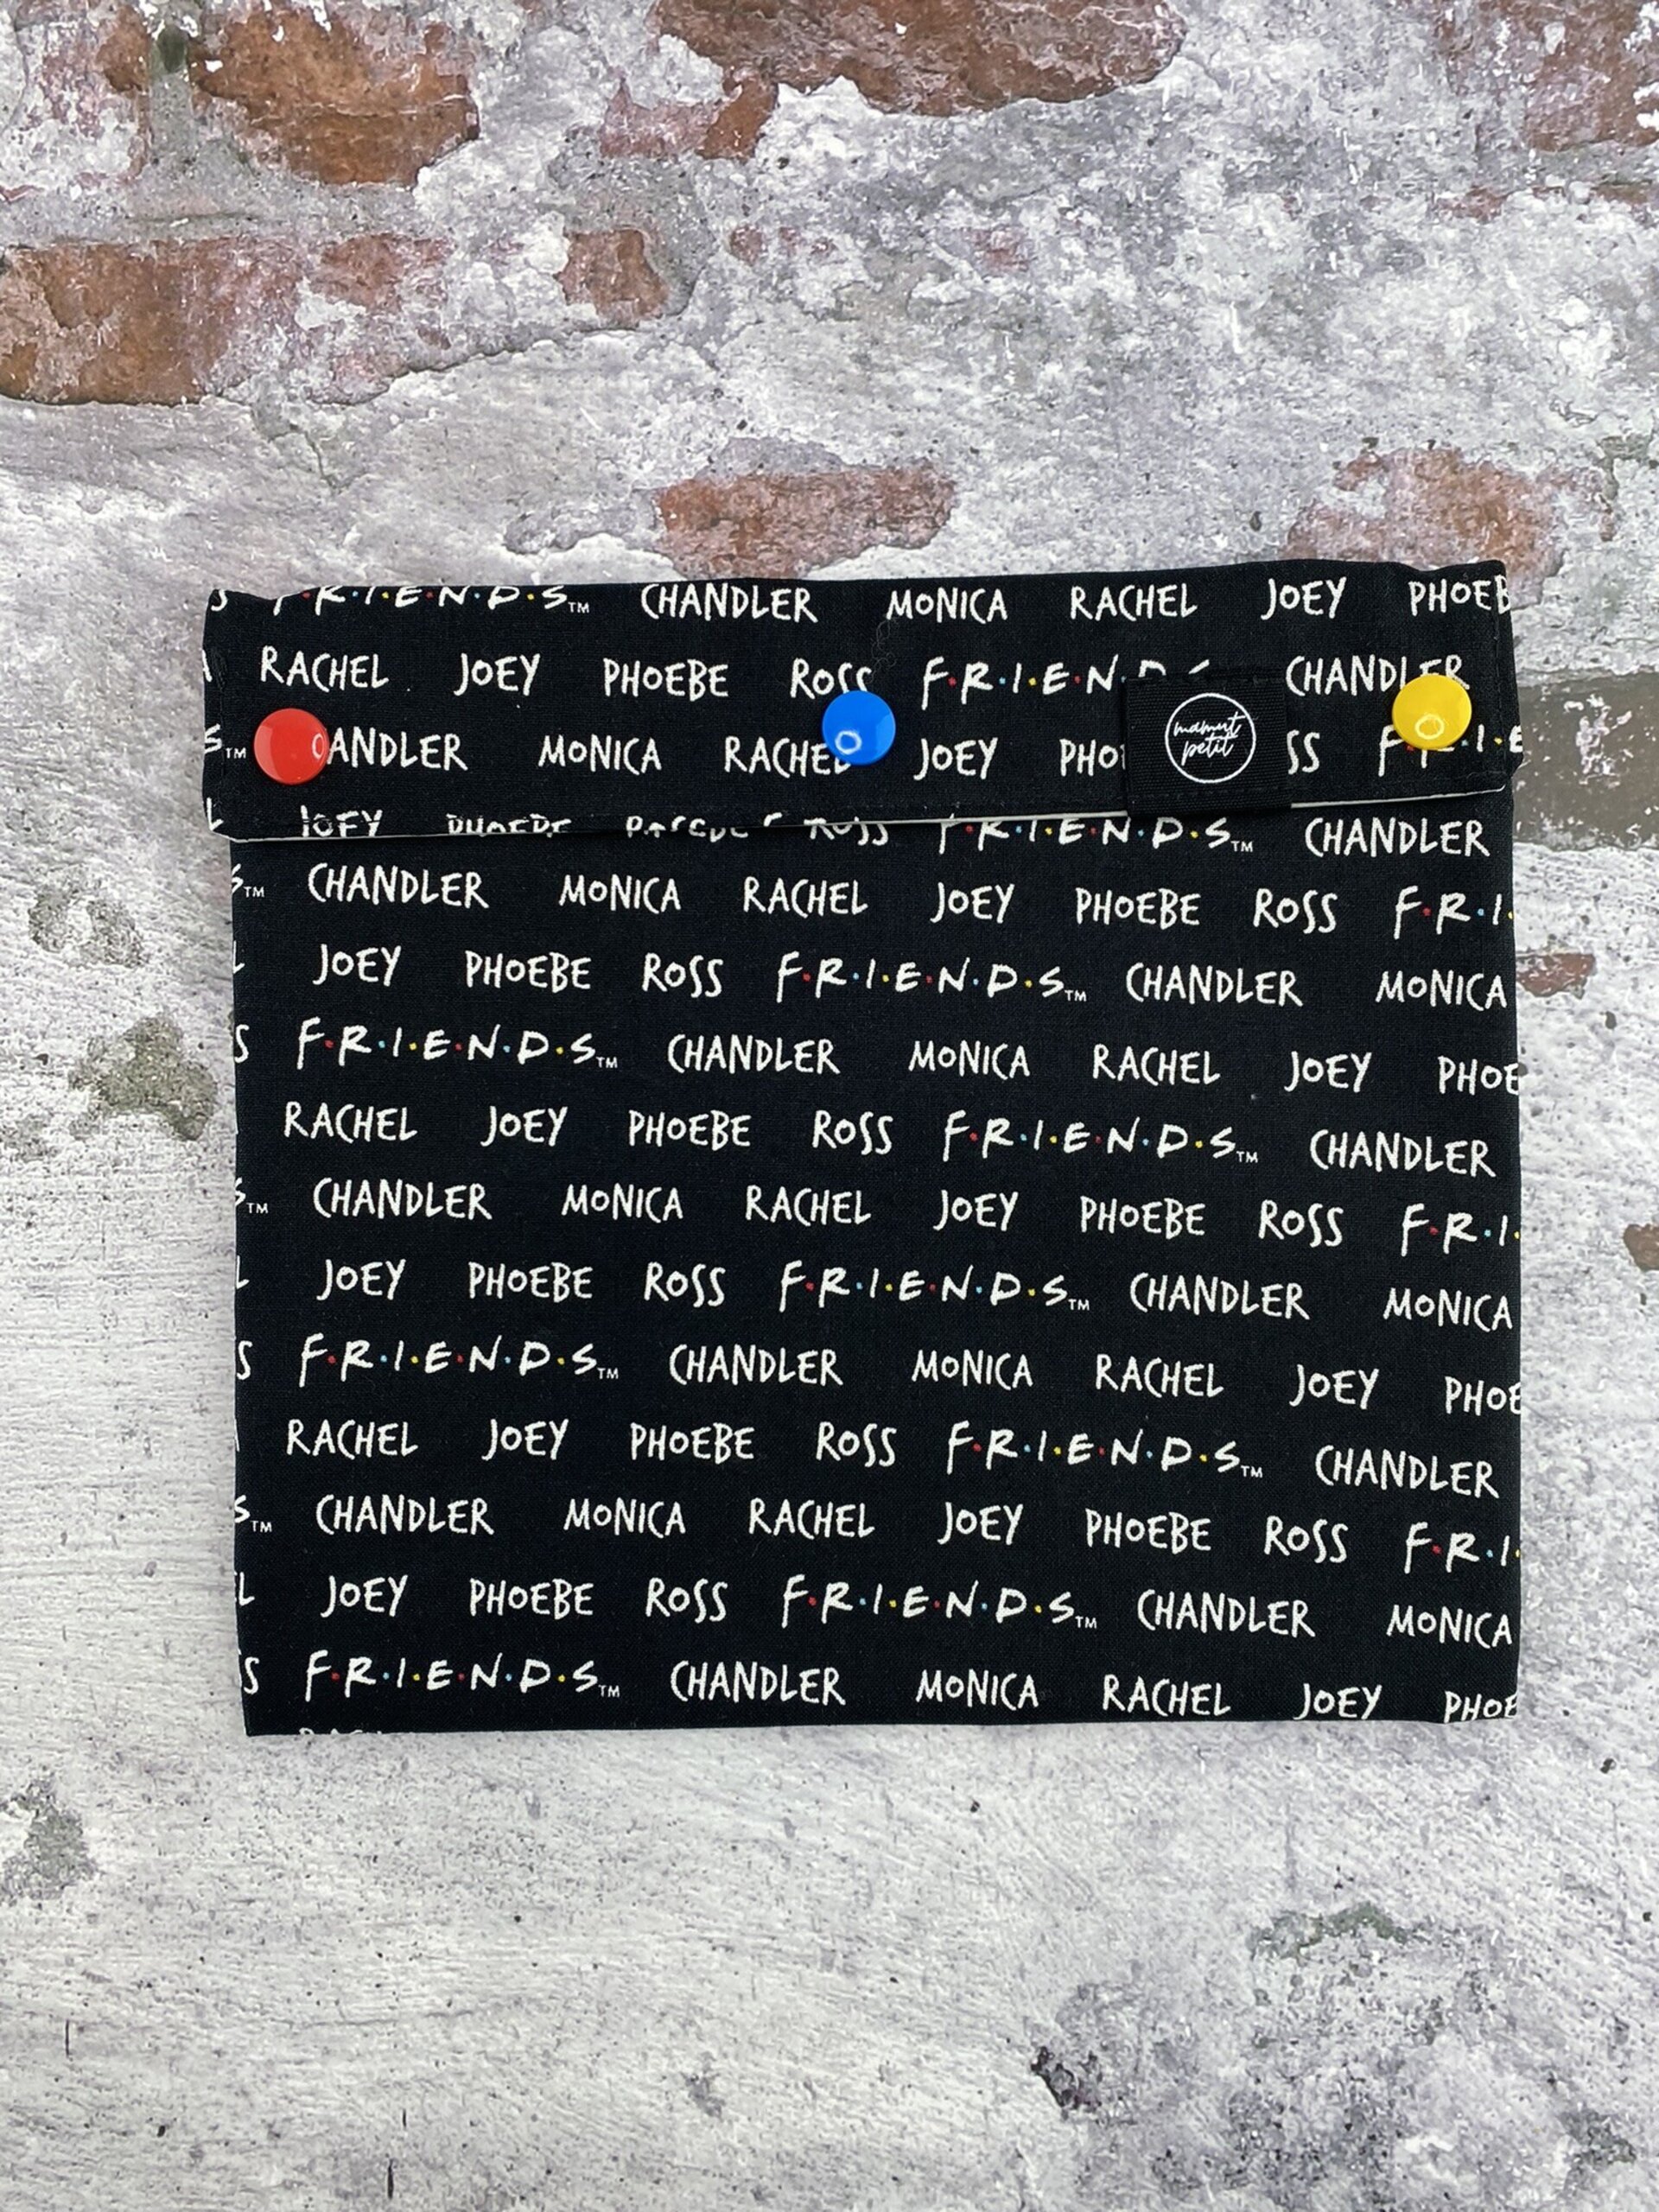 S F·R·I·E·N·D·S™ CHANDLER MONICA RACHEL JOEY PHOEB
RACHEL JOEY PHOEBE ROSS F·R·I·E·N·D·S CHANDLER
S™ CHANDLER MONICA RACHEL JOEY PHO SS F·R·I·E
mamut
petit
L JOEY PHOEBE ROSS F·R·I·E·N·D·S™ CHANDLER
S™ CHANDLER MONICA RACHEL JOEY PHOEBE ROSS F·R·I·
L JOEY PHOEBE ROSS F·R·I·E·N·D·S™ CHANDLER MONICA
S F·R·I·E·N·D·S™ CHANDLER MONICA RACHEL JOEY PHOE
RACHEL JOEY PHOEBE ROSS F·R·I·E·N·D·S™ CHANDLER
S™ CHANDLER MONICA RACHEL JOEY PHOEBE ROSS F·R·I·
L JOEY PHOEBE ROSS F·R·I·E·N·D·S™ CHANDLER MONICA
S F·R·I·E·N·D·S™ CHANDLER MONICA RACHEL JOEY PHOE
RACHEL JOEY PHOEBE ROSS F·R·I·E·N·D·S™ CHANDLER
S™ CHANDLER MONICA RACHEL JOEY PHOEBE ROSS F·R·I·
L JOEY PHOEBE ROSS F·R·I·E·N·D·S™ CHANDLER MONICA
S F·R·I·E·N·D·S™ CHANDLER MONICA RACHEL JOEY PHOE